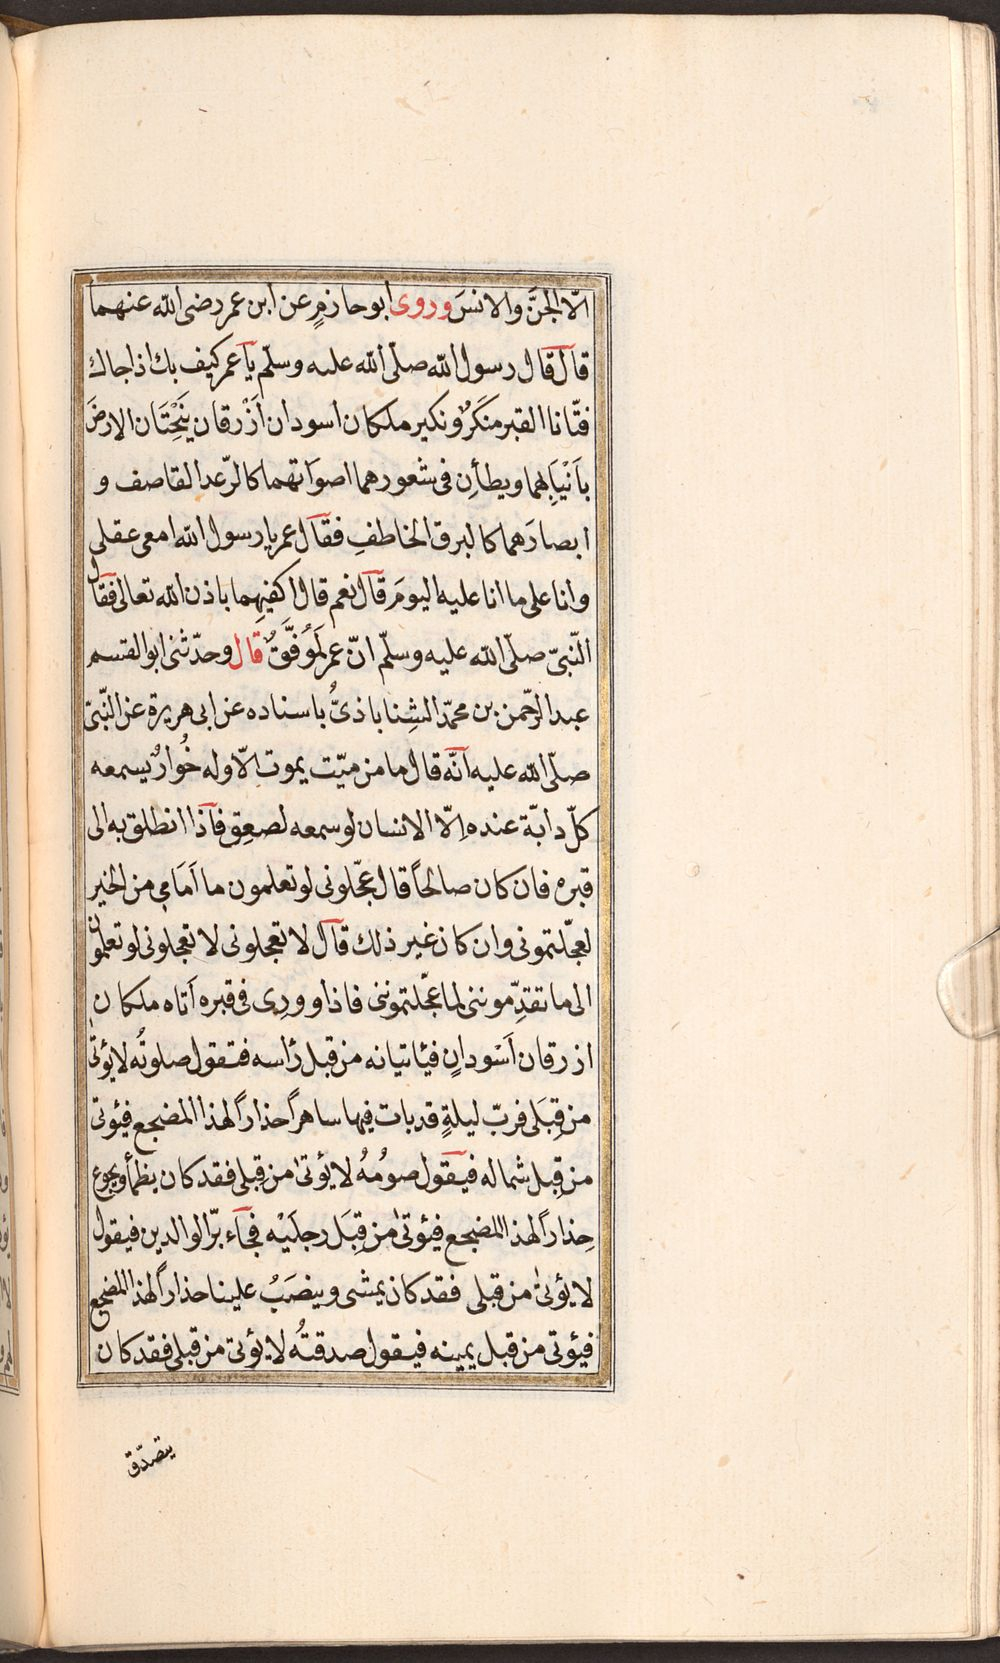 الّا الجنَّ والانسَ وروى ابو حازمٍ عن ابن عمر رضى الله عنهما
قال قال رسول الله صلّى الله عليه وسلّم يا عمر كيف بك اذا جاك
فتّانا القبر منكَرٌ ونكير ملكان اسودان اَزْرقان يَنْحِتَان الارضَ
باَنْيَابِهما ويطأنِ فى شعورهما اصوَاتهما كالرّعد القاصف و
ابصارَهما كالبرق الخاطفِ فقال عمر يا رسول الله امعى عقلى
وانا على ما انا عليه اليومَ قال نعم قال اكفيهِما باذن الله تعالى فقال
النّبىّ صلّى الله عليه وسلّم انّ عمر لَمُوَفَّقٌ قال وحدّثنى ابو القسم
عبد الرّحمن بن محمّد الشِنا باذىُّ باسناده عن ابى هريرة عن النّبىّ
صلّى الله عليه انّه قال ما من ميّت يموت الّا وله خُوارٌ يسمعه
كلّ دابّة عنده اِلّا الانسان لو سمعه لصعِق فاذا انطلق به الى
قبره فان كان صالحاً قال عجّلونى لو تعلمون ما اَمَامى من الخير
لعجّلتمونى وان كان غير ذلك قال لا تعجلونى لا تعجلونى لو تعلمون
الى ما تقدّموننى لما عجّلتموننى فاذا وورِى فى قبره اَتاه ملكان
ازرقان اَسْودانِ فيُاتيانه من قبل رأسه فتقول صلوتُه لا يؤتى
من قِبَلى فربّ ليلةٍ قد بات فيها ساهراً حذاراً لهذا المضجع فيُوتى
من قِبل شماله فيقول صومُهُ لا يؤتىٰ من قِبلى فقد كان يظمأ ويجوع
حِذاراً لهذا المضجع فيُوتىٰ من قِبَل رجلَيْه فجاء برّ الوالدين فيقول
لا يؤتىٰ من قبلى فقد كان يمشى وينصَبُ علينا حذاراً لهذا المضجع
فيؤتى من قبل يمينه فيقول صدقتُه لا يؤتى من قبلى فقد كان
يتصدّق